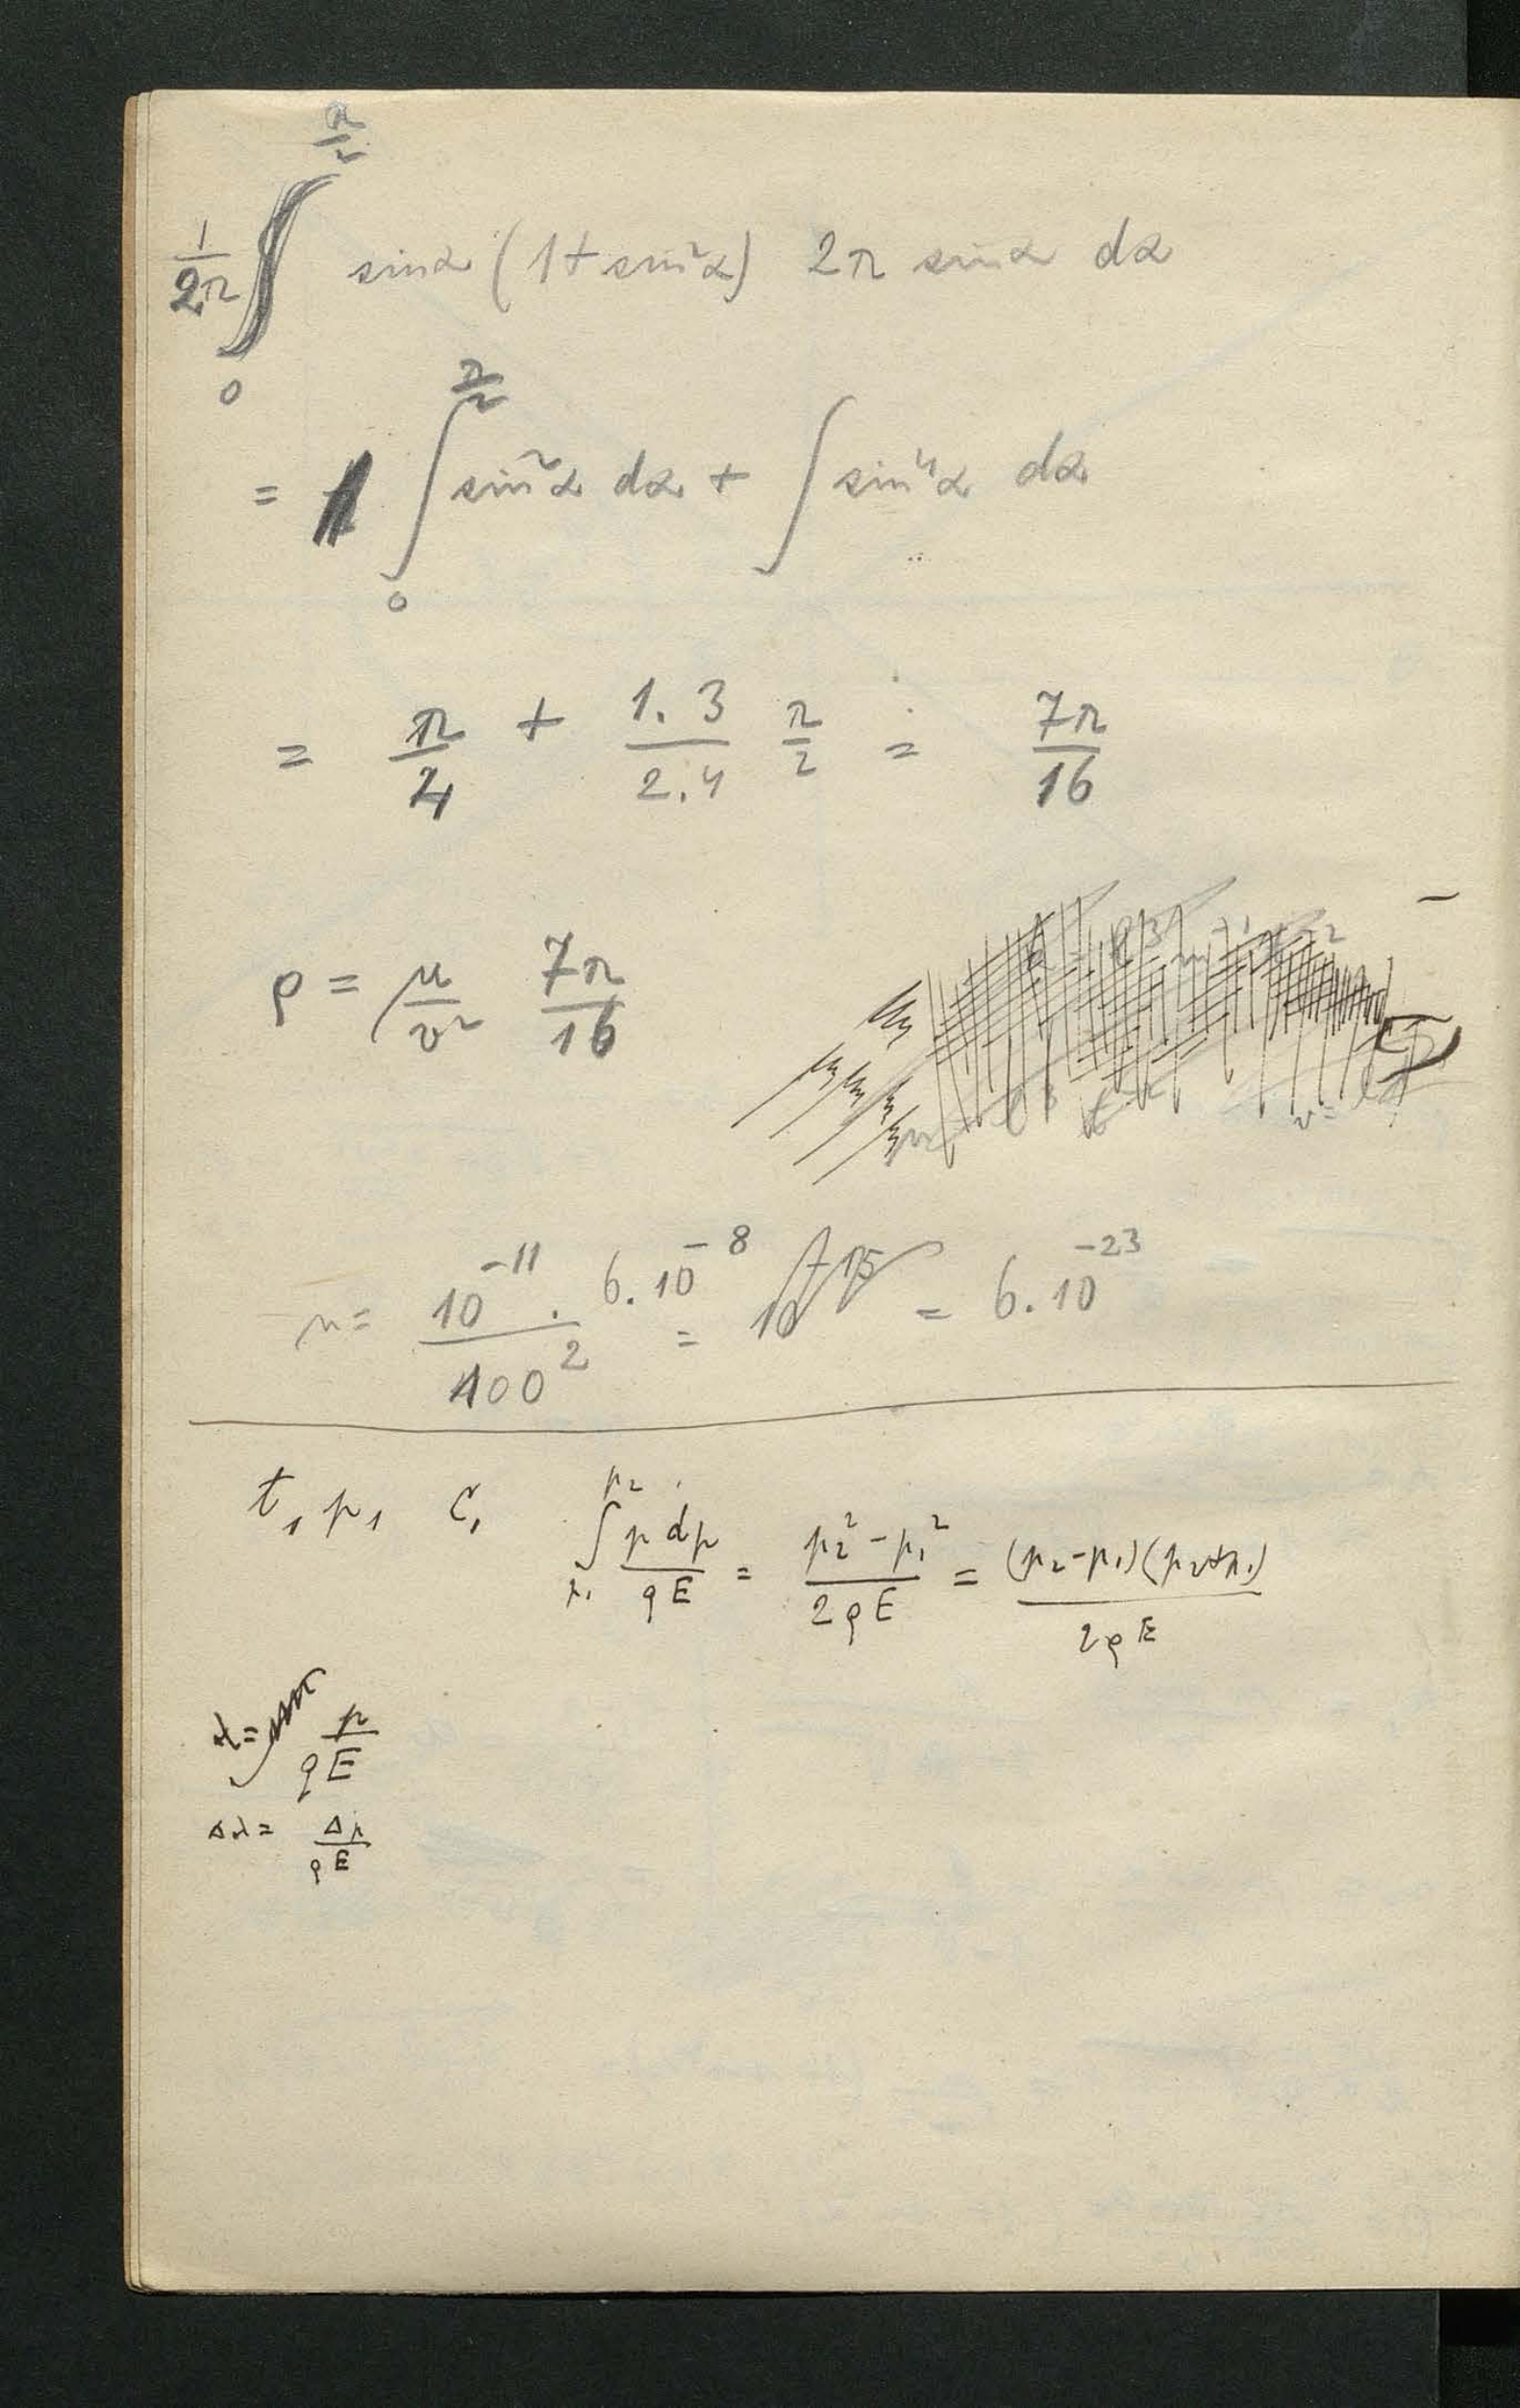 1/2π ∫₀^{π/2} sin α (1 + sin² α) 2π sin α dα
= 1 ∫₀^{π/2} sin² α dα + ∫ sin⁴ α dα
= π/4 + 1.3/2.4 π/2 = 7π/16
ρ = μ/v² 7π/16
= 10⁻¹¹ . 6.10⁻⁸ / 100² = = 6.10⁻²³
t₁ p₁ c₁ ∫_{p₁}^{p₂} p dp / ρE = p₂² - p₁² / 2ρE = (p₂-p₁)(p₂+p₁) / 2ρE
λ = p/ρE
Δλ = Δp/ρE